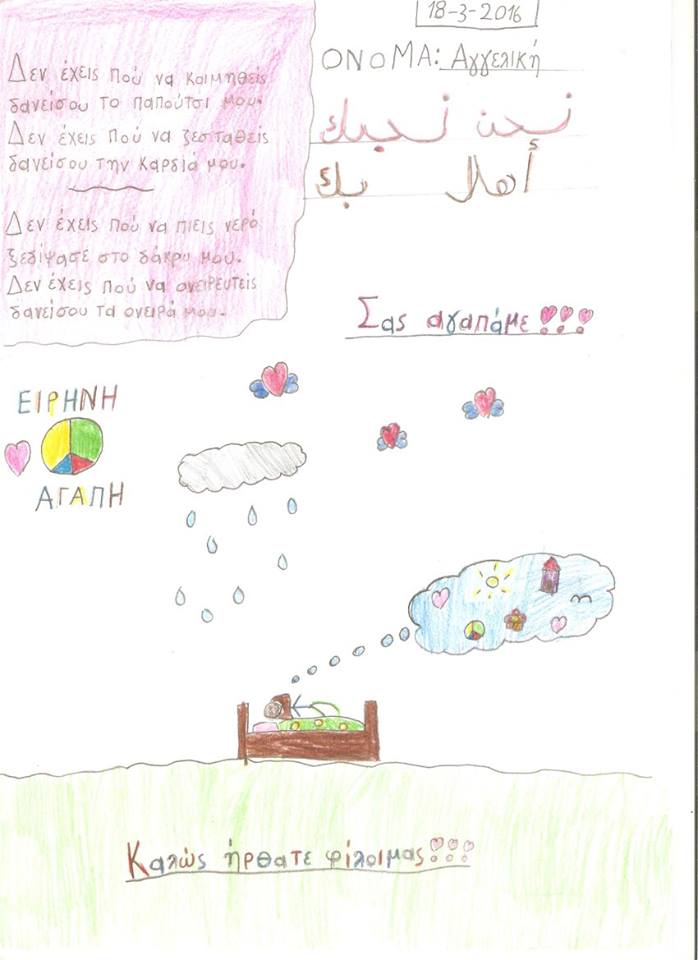 18-3-2016
ΟΝΟΜΑ: Αγγελική
نحن نحبك
أهلا بك
Δεν έχεις πού να κοιμηθείς
δανείσου το παπούτσι μου.
Δεν έχεις πού να ζεσταθείς
δανείσου την καρδιά μου.
Δεν έχεις πού να πιεις νερό
ξεδίψασε στο δάκρυ μου.
Δεν έχεις πού να ονειρευτείς
δανείσου τα όνειρά μου.
Σας αγαπάμε!!!
ΕΙΡΗΝΗ
ΑΓΑΠΗ
Καλώς ήρθατε φίλοι μας!!!